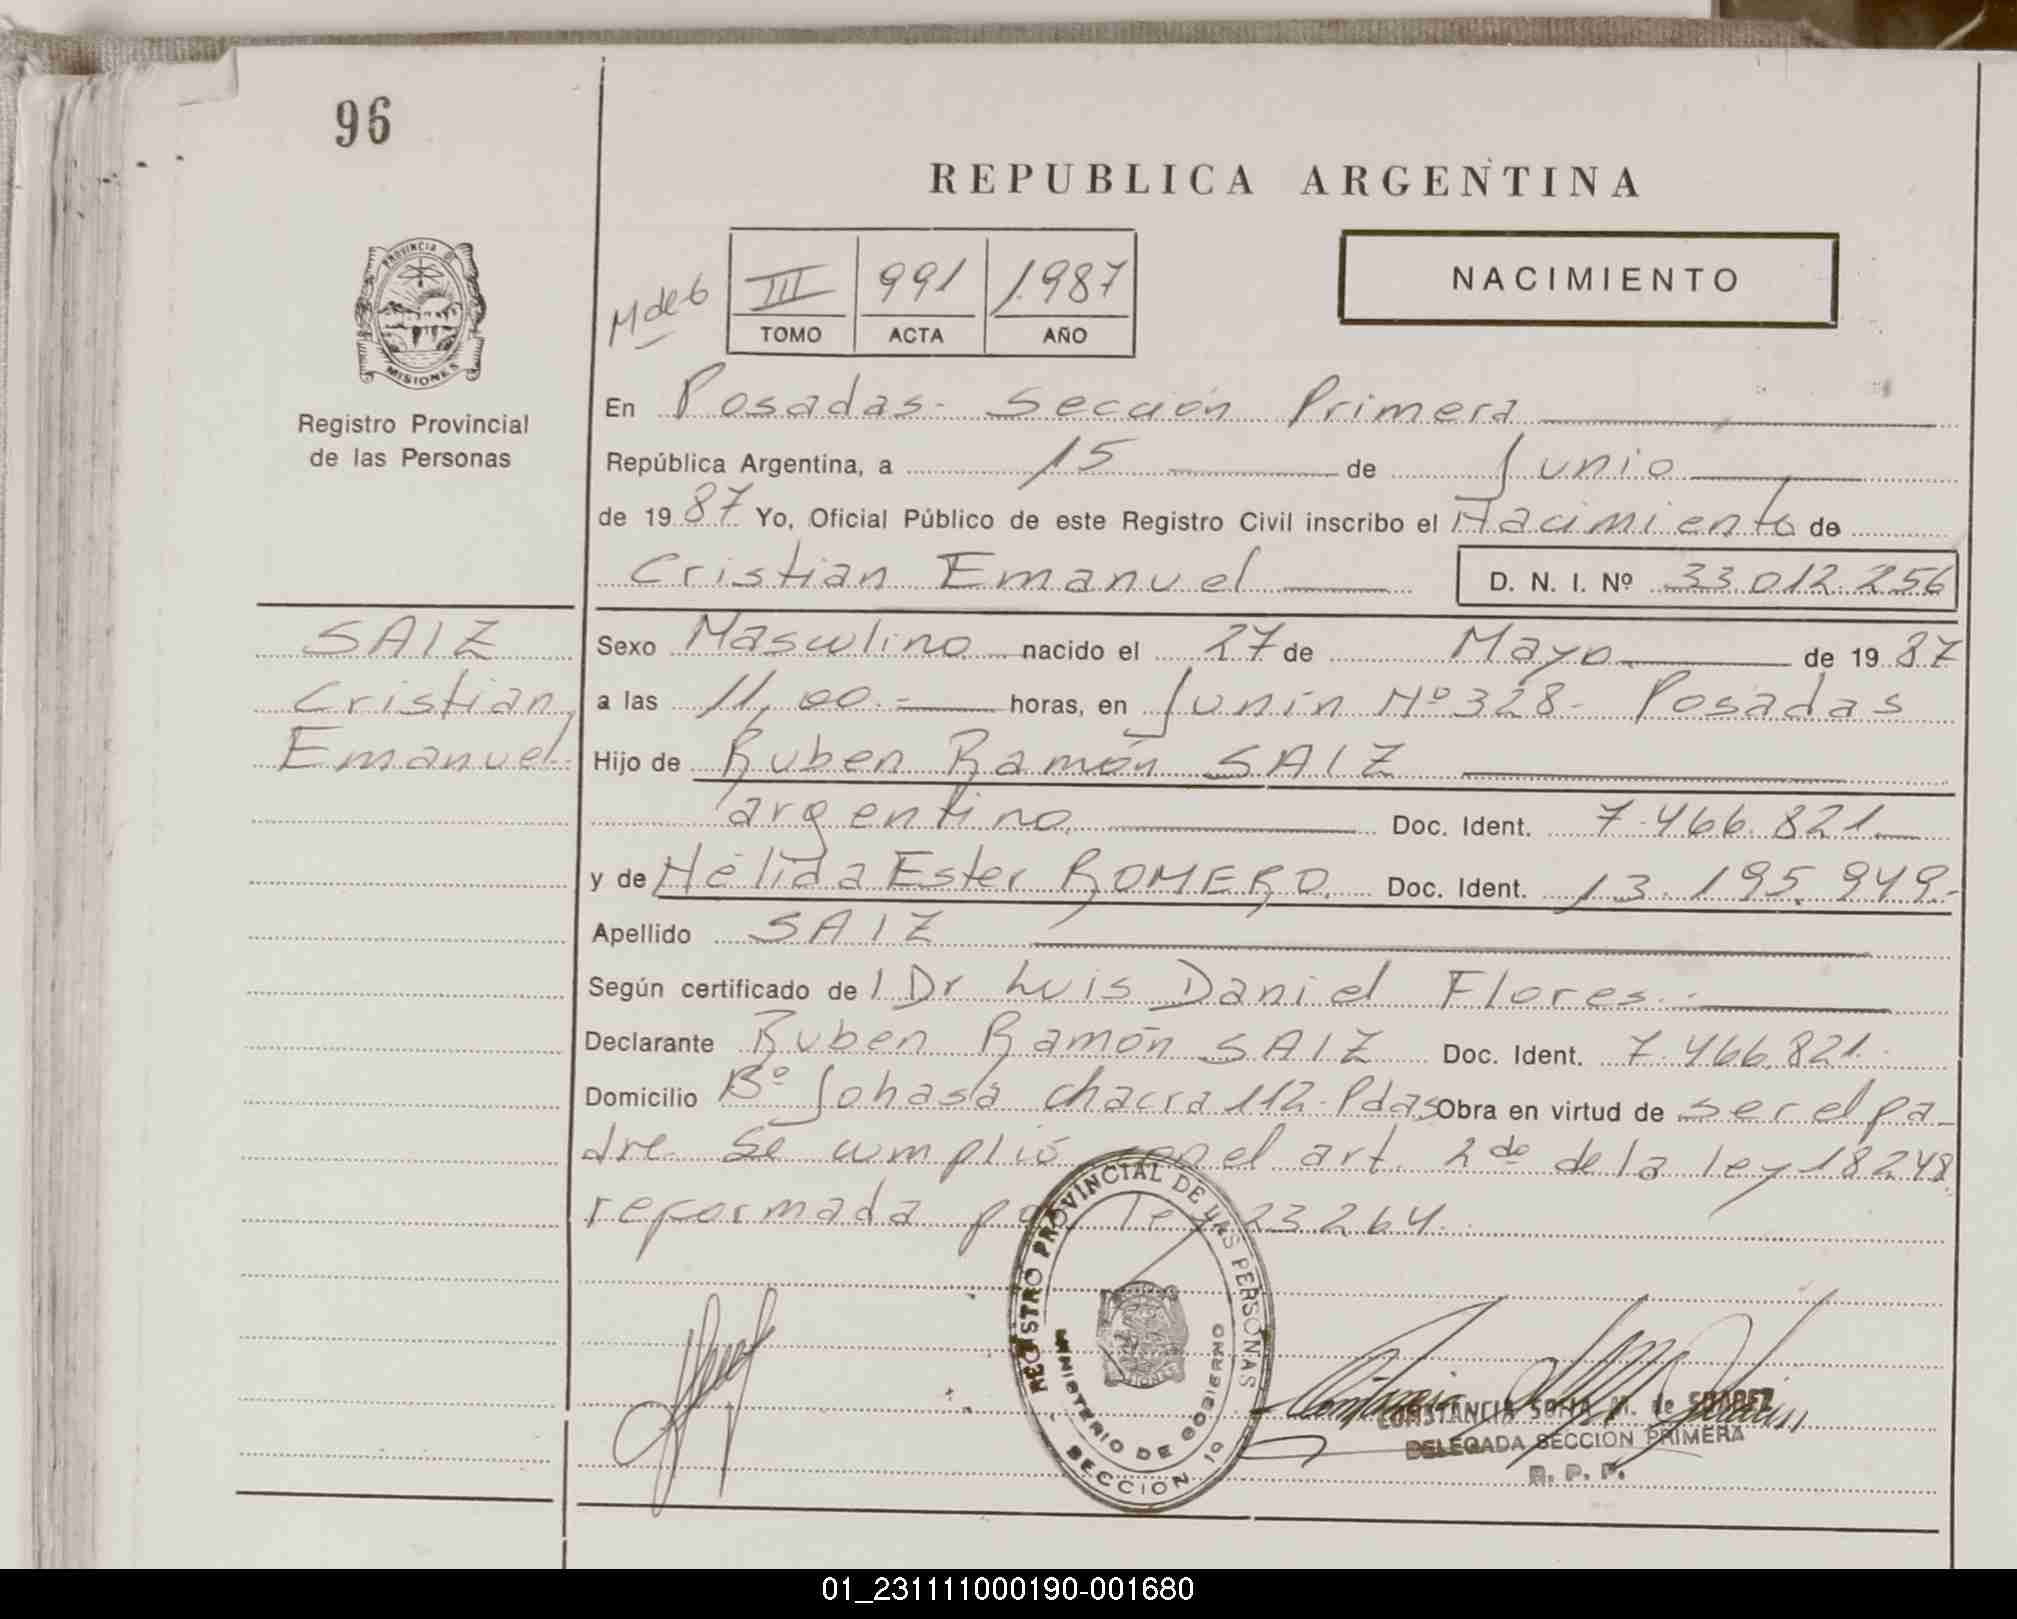 96
REPUBLICA ARGENTINA
PROVINCIA DE
MISIONES
Registro Provincial
de las Personas
M de 6
III 991 1987
TOMO ACTA AÑO
NACIMIENTO
En Posadas - Sección Primera
República Argentina, a 15 de Junio
de 1987 Yo, Oficial Público de este Registro Civil inscribo el Nacimiento de
Cristian Emanuel D. N. I. Nº 33.012.256
SAIZ
Cristian,
Emanuel.
Sexo Masculino nacido el 27 de Mayo de 1987
a las 11,00.= horas, en Junin Nº 328 - Posadas
Hijo de Ruben Ramón SAIZ
argentino. Doc. Ident. 7.466.821.
y de Nélida Ester ROMERO. Doc. Ident. 13.195.949.-
Apellido SAIZ
Según certificado de l Dr Luis Daniel Flores.-
Declarante Ruben Ramón SAIZ Doc. Ident. 7.466.821.
Domicilio Bº chacra 112 - Pdas Obra en virtud de ser el pa-
dre. Se cumplió con el art. 2do de la ley 18248
reformada por ley 23264.
REGISTRO PROVINCIAL DE LAS PERSONAS
MINISTERIO DE GOBIERNO
SECCION 1º
CONSTANCIA SOFIA M. de SUAREZ
DELEGADA SECCION PRIMERA
R. P. P.
01_231111000190-001680